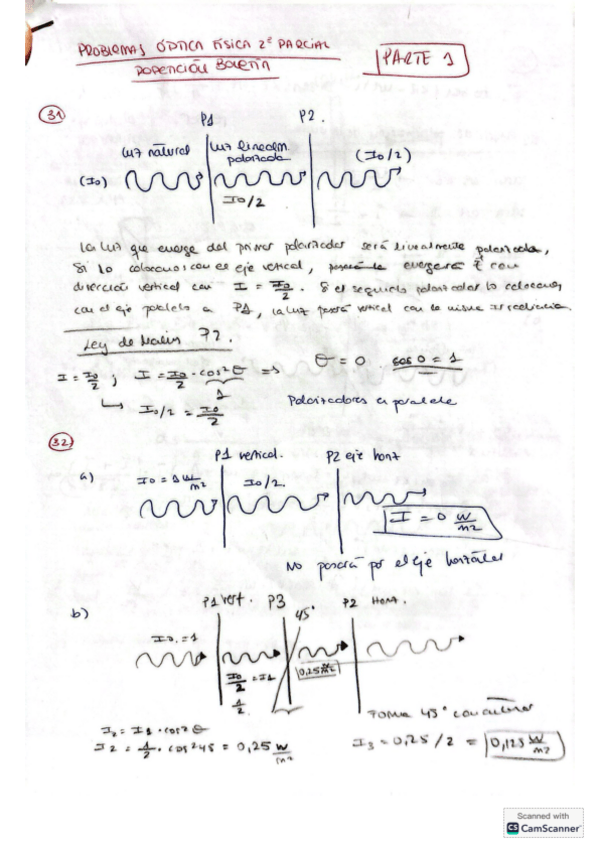 PROBLEMAS ÓPTICA FÍSICA 2º PARCIAL
BOLETÍN
PARTE 1
31
P1 P2.
luz natural luz linealm. polarizada (I0/2)
(I0)
I0/2
La luz que emerge del primer polarizador será linealmente polarizada,
Si lo colocamos con el eje vertical, emergerá con
dirección vertical con I = I0/2. Si el segundo polarizador lo colocamos
con el eje paralelo a P1, la luz pasará vertical con la misma irradiancia.
Ley de Malus P2.
I = I0/2 ; I = I0/2 · cos²θ ⇒ θ = 0 cos 0 = 1
1
↳ I0/2 = I0/2 Polarizadores en paralelo
32
P1 vertical. P2 eje horiz
a) I0 = 1 W/m2 I0/2
I = 0 W/m2
No pasará por el eje horizontal
b) P1 vert. P3 45° P2 Horiz.
I0 = 1
I0/2 = I1 0,25 W/m2
1/2
Forma 45° con
I2 = I1 · cos²θ
I2 = 1/2 · cos²45 = 0,25 W/m2 I3 = 0,25/2 = 0,125 W/m2
Scanned with
CS CamScanner